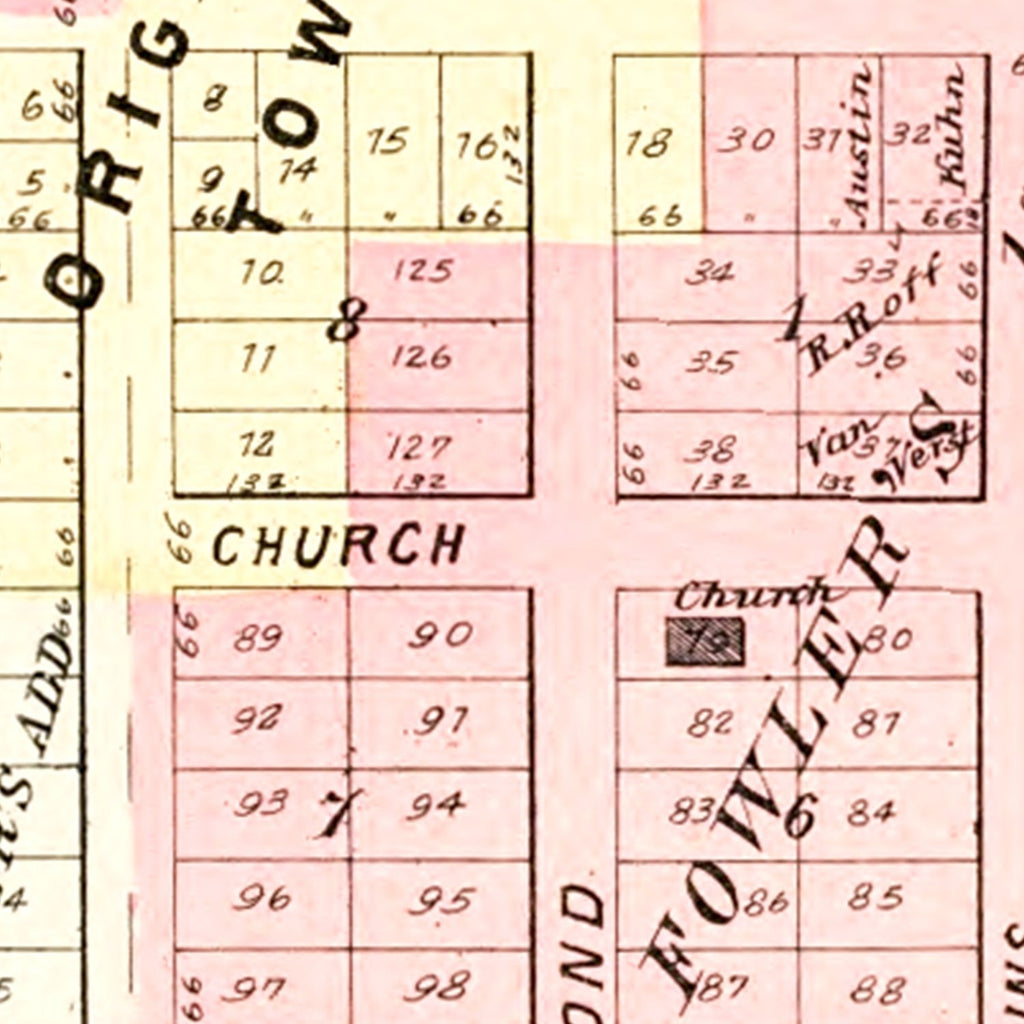 ORIG
TOW
6
66
5
66
8
9
66
14
"
15
"
16
132
66
10
125
11
8
126
12
127
132
132
18
66
30
"
31
"
Austin
32
Kuhn
66
34
33
66
1
R. Roff
66
35
36
66
66
38
Van
37
132
132
66
CHURCH
66
66
66
89
90
92
91
93
7
94
96
95
66
97
98
ADD
Church
79
80
82
81
83
6
84
86
85
87
88
FOWLER
S
OND